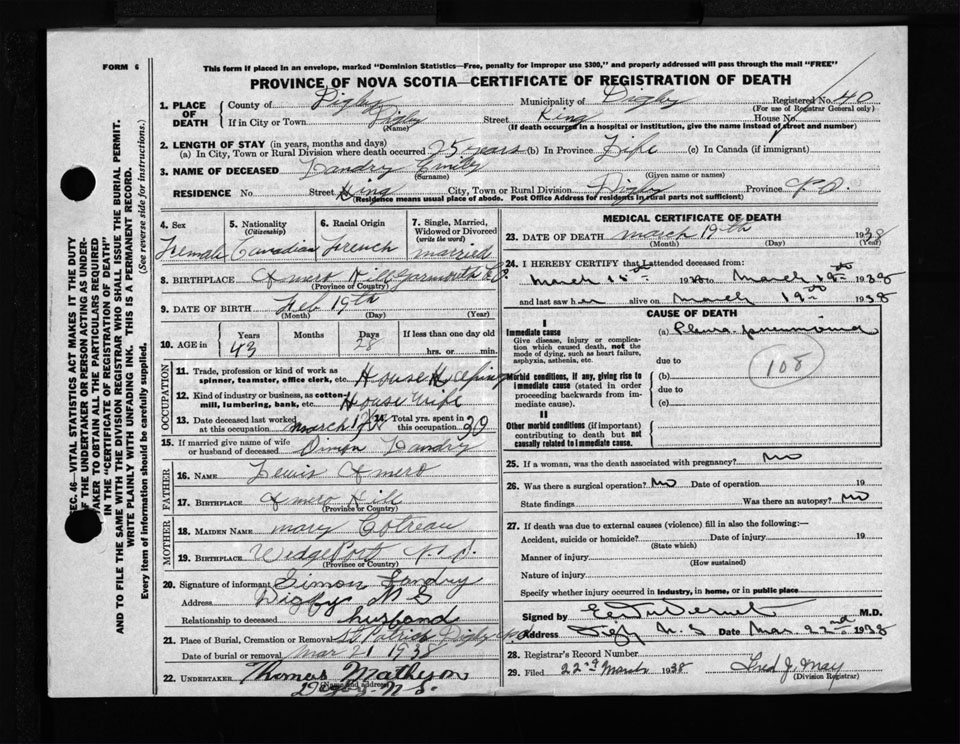 FORM 6
This form if placed in an envelope, marked "Dominion Statistics—Free, penalty for improper use $300," and properly addressed will pass through the mail "FREE"
PROVINCE OF NOVA SCOTIA—CERTIFICATE OF REGISTRATION OF DEATH
SEC. 46—VITAL STATISTICS ACT MAKES IT THE DUTY
OF THE UNDERTAKER OR PERSON ACTING AS UNDER-
TAKER TO OBTAIN ALL THE PARTICULARS REQUIRED
IN THE "CERTIFICATE OF REGISTRATION OF DEATH"
AND TO FILE THE SAME WITH THE DIVISION REGISTRAR WHO SHALL ISSUE THE BURIAL PERMIT.
WRITE PLAINLY WITH UNFADING INK. THIS IS A PERMANENT RECORD.
Every item of information should be carefully supplied. (See reverse side for instructions.)
1. PLACE OF DEATH County of Digby Municipality of Digby Registered No. 40
(For use of Registrar General only)
If in City or Town Digby Street King House No.
(Name) (If death occurred in a hospital or institution, give the name instead of street and number)
2. LENGTH OF STAY (in years, months and days)
(a) In City, Town or Rural Division where death occurred 25 years (b) In Province Life (c) In Canada (if immigrant)
3. NAME OF DECEASED Landry Emily
(Surname) (Given name or names)
RESIDENCE No Street King City, Town or Rural Division Digby Province N.S.
(Residence means usual place of abode. Post Office Address for residents in rural parts not sufficient)
4. Sex 5. Nationality (Citizenship) 6. Racial Origin 7. Single, Married, Widowed or Divorced (write the word)
Female Canadian French married
8. BIRTHPLACE Amero Hill Yarmouth Co.
(Province or Country)
9. DATE OF BIRTH Feb 19th
(Month) (Day) (Year)
10. AGE in Years Months Days If less than one day old
43 28 hrs. or min.
OCCUPATION
11. Trade, profession or kind of work as spinner, teamster, office clerk, etc. House Keeping
12. Kind of industry or business, as cotton-mill, lumbering, bank, etc. House wife
13. Date deceased last worked at this occupation March 14. Total yrs. spent in this occupation 20
15. If married give name of wife or husband of deceased Simon Landry
FATHER
16. Name Lewis Amero
17. Birthplace Amero Hill
(Province or Country)
MOTHER
18. Maiden Name mary Cotreau
19. Birthplace WedgePort N.S.
(Province or Country)
20. Signature of informant Simon Landry
Address Digby N S
Relationship to deceased husband
21. Place of Burial, Cremation or Removal St Patrick Digby
Date of burial or removal Mar 21 1938
22. UNDERTAKER Thomas Matheson
(Name and address)
Digby N.S.
MEDICAL CERTIFICATE OF DEATH
23. DATE OF DEATH March 19th 1938
(Month) (Day) (Year)
24. I HEREBY CERTIFY that I attended deceased from:
March 15th 1938 to March 19th 1938
and last saw her alive on March 19th 1938
CAUSE OF DEATH
I
Immediate cause (a) Pleuro-pneumonia
Give disease, injury or complication which caused death, not the mode of dying, such as heart failure, asphyxia, asthenia, etc.
due to
108
Morbid conditions, if any, giving rise to immediate cause (stated in order proceeding backwards from immediate cause).
(b)
due to
(c)
II
Other morbid conditions (if important) contributing to death but not causally related to immediate cause.
25. If a woman, was the death associated with pregnancy? No
26. Was there a surgical operation? No Date of operation 19
State findings Was there an autopsy? No
27. If death was due to external causes (violence) fill in also the following:—
Accident, suicide or homicide? Date of injury 19
(State which)
Manner of injury
(How sustained)
Nature of injury
Specify whether injury occurred in industry, in home, or in public place
Signed by E. DuVernet M.D.
Address Digby N.S Date Mar. 22nd 1938
28. Registrar's Record Number
29. Filed 22nd March 1938 Fred J. May
(Division Registrar)